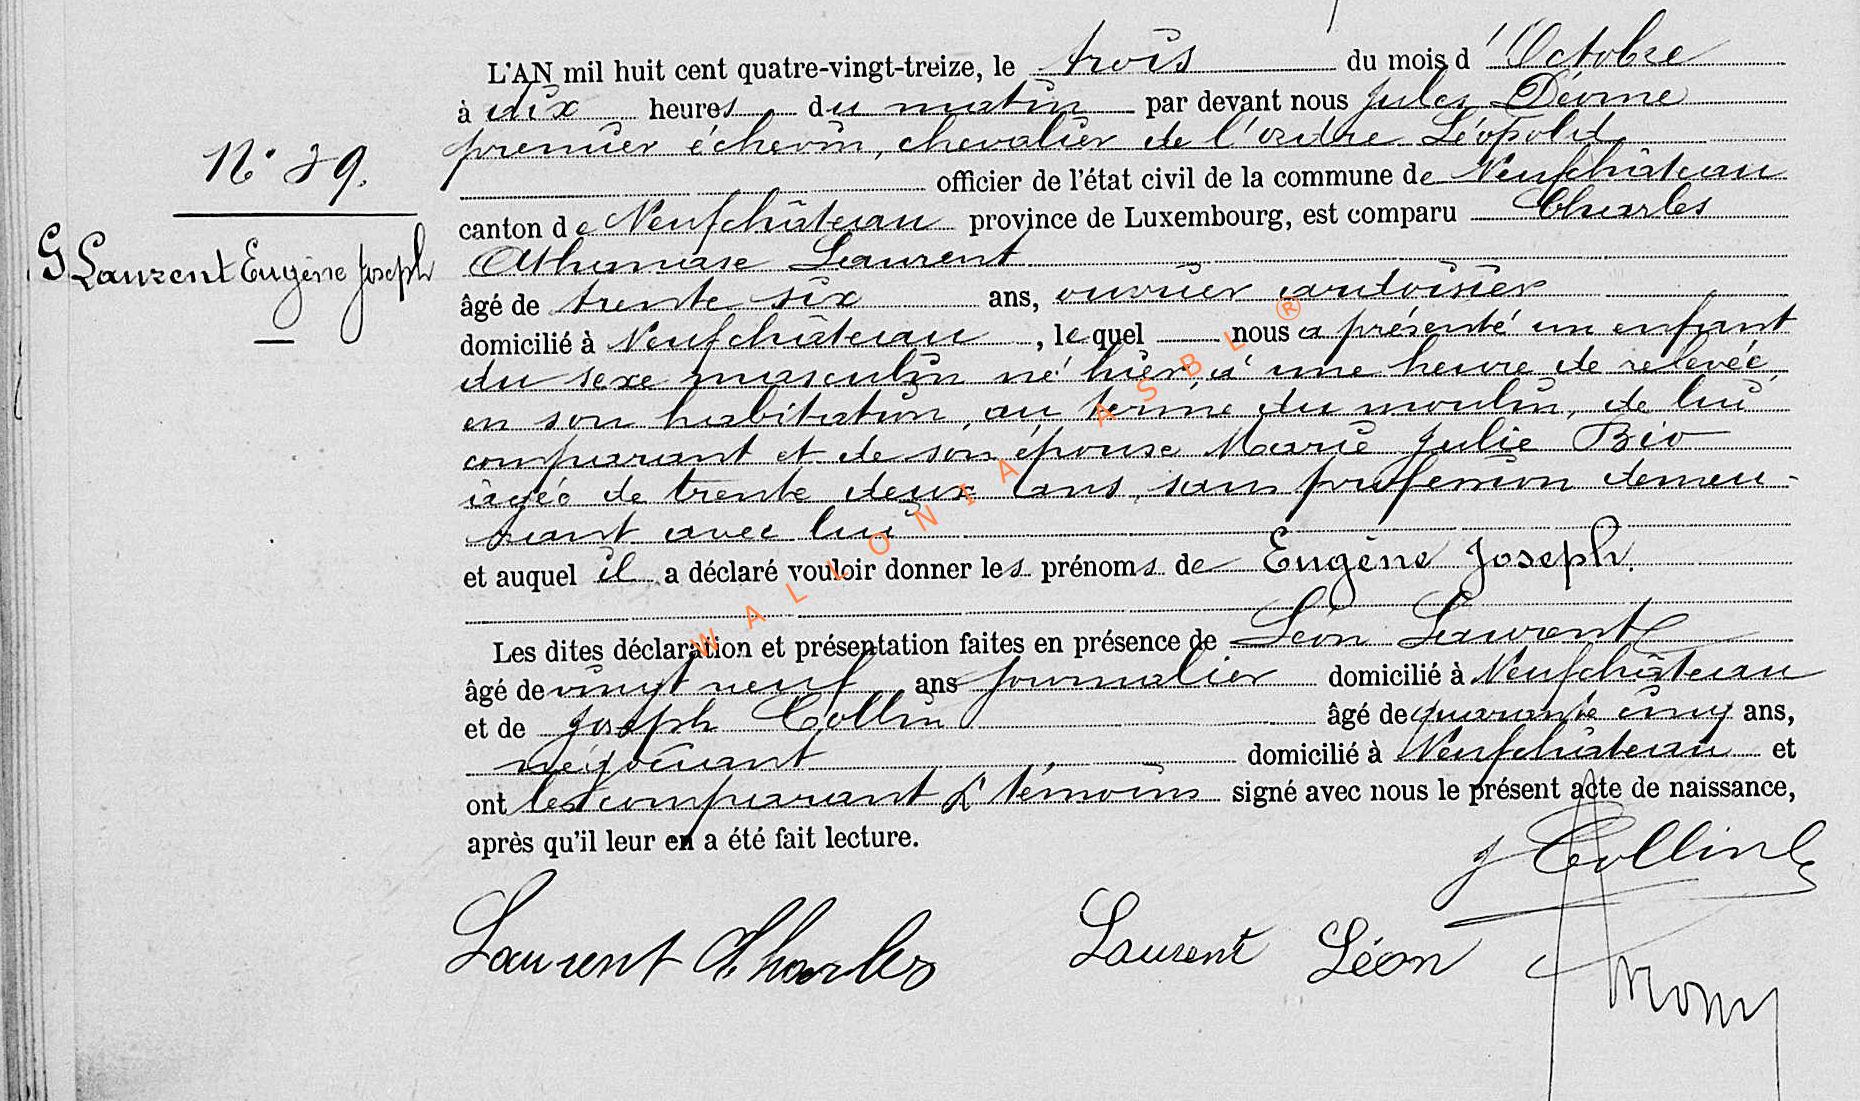 L'AN mil huit cent quatre-vingt-treize, le trois du mois d'Octobre
à dix heures du matin par devant nous Jules
premier échevin, chevalier de l'ordre Léopold
N° 39. officier de l'état civil de la commune de Neufchâteau
canton de Neufchâteau province de Luxembourg, est comparu Charles
G Laurent Eugène Joseph
Athanase Laurent
âgé de trente six ans, ouvrier ardoisier
domicilié à Neufchâteau, lequel nous a présenté un enfant
du sexe masculin né hier, à une heure de relevée,
en son habitation, au terme du moulin, de lui
comparant et de son épouse Marie Julie Bio
âgée de trente deux ans, sans profession demeu-
rant avec lui
et auquel il a déclaré vouloir donner les prénoms de Eugène Joseph.
Les dites déclaration et présentation faites en présence de Léon Laurent
âgé de vingt neuf ans journalier domicilié à Neufchâteau
et de Joseph Collin âgé de quarante cinq ans,
négociant domicilié à Neufchâteau et
ont les comparant & témoins signé avec nous le présent acte de naissance,
après qu'il leur en a été fait lecture.
J Collin
Laurent Charles Laurent Léon
WALLONIA ASBL ®